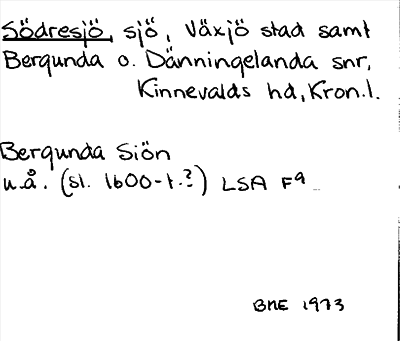 Södresjö, sjö, Växjö stad samt
Bergunda o. Dänningelanda snr,
Kinnevalds hd, Kron.l.
Bergunda Siön
u.å. (sl. 1600-t.?) LSA F9
BME 1973